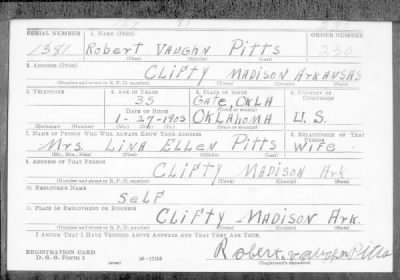 SERIAL NUMBER 1. NAME (Print) ORDER NUMBER
1381 Robert Vaughn Pitts 230
(First) (Middle) (Last)
2. ADDRESS (Print)
Clifty Madison Arkansas
(Number and street or R. F. D. number) (Town) (County) (State)
3. TELEPHONE 4. AGE IN YEARS 5. PLACE OF BIRTH 6. COUNTRY OF CITIZENSHIP
35 Gate, Okla
DATE OF BIRTH (Town or county)
1-27-1905 Oklahoma U.S.
(Exchange) (Number) (Mo.) (Day) (Yr.) (State or country)
7. NAME OF PERSON WHO WILL ALWAYS KNOW YOUR ADDRESS 8. RELATIONSHIP OF THAT PERSON
Mrs. Lina Ellen Pitts Wife
(Mr., Mrs., Miss) (First) (Middle) (Last)
9. ADDRESS OF THAT PERSON
Clifty Madison Ark
(Number and street or R. F. D. number) (Town) (County) (State)
10. EMPLOYER'S NAME
Self
11. PLACE OF EMPLOYMENT OR BUSINESS
Clifty Madison Ark.
(Number and street or R. F. D. number) (Town) (County) (State)
I AFFIRM THAT I HAVE VERIFIED ABOVE ANSWERS AND THAT THEY ARE TRUE.
REGISTRATION CARD
D. S. S. Form 1 16-17105 Robert Vaughn Pitts
(Registrant's signature)